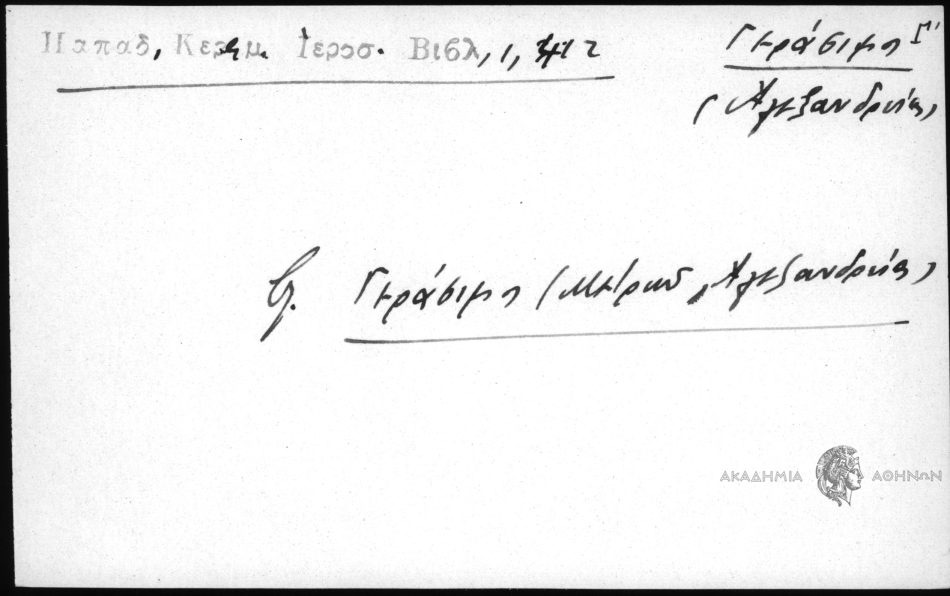 Παπαδ, Κεραμ. Ἱεροσ. Βιβλ, 1,
Γεράσιμος Γ'
(Ἀλεξανδρείας)
βλ. Γεράσιμος (Μετρ. , Ἀλεξανδρείας)
ΑΚΑΔΗΜΙΑ ΑΘΗΝΩΝ